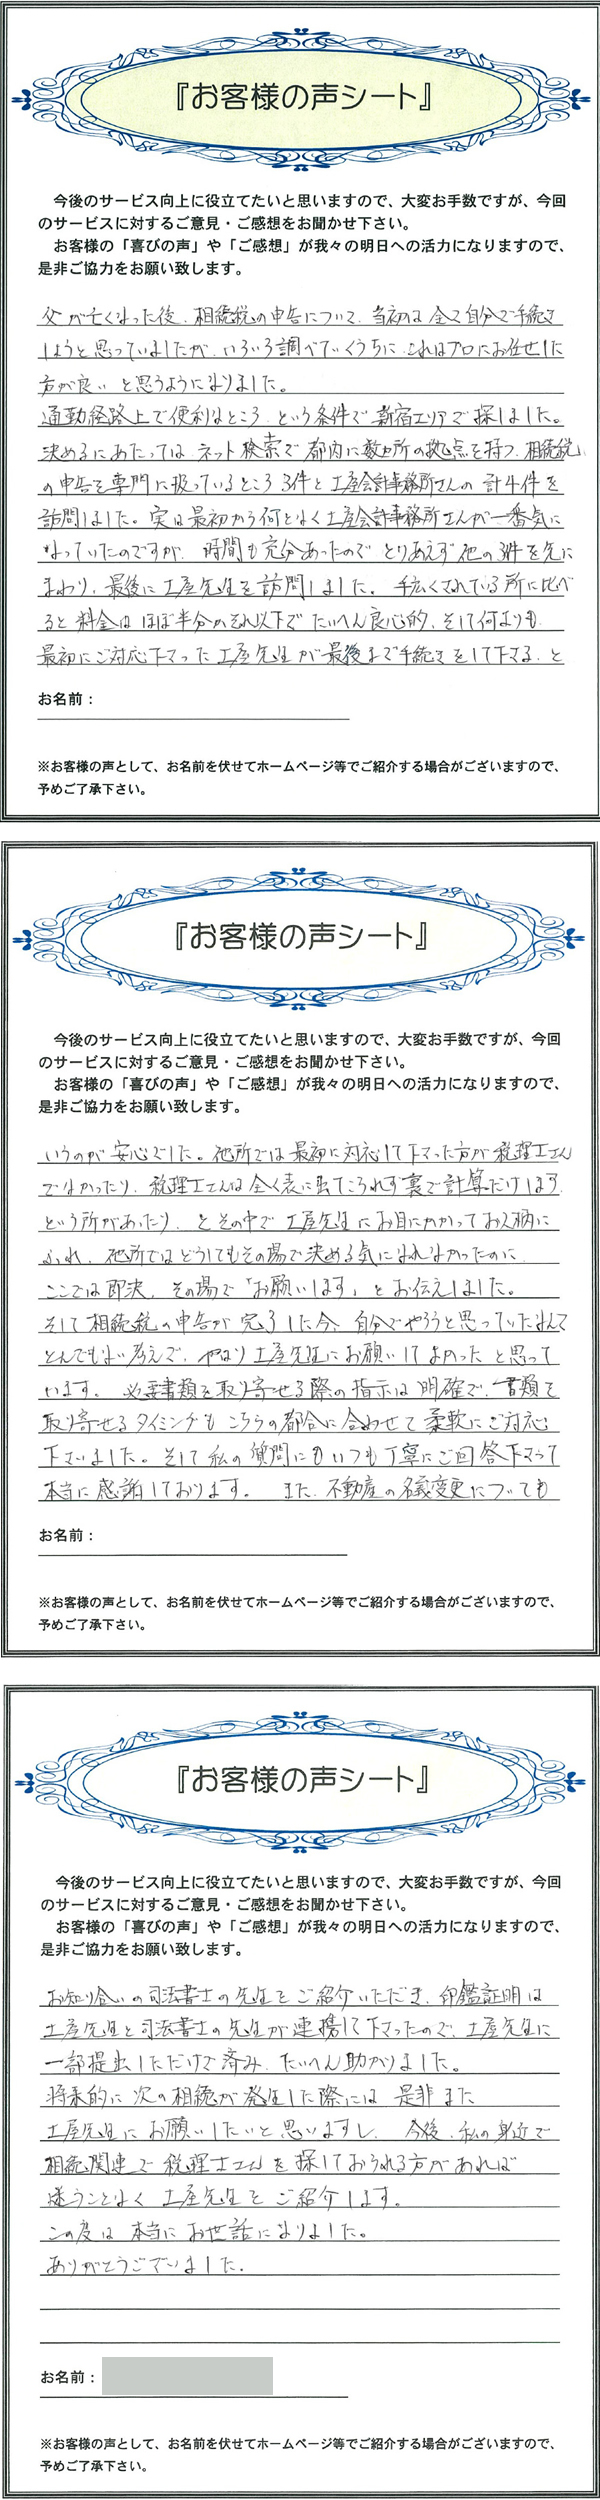 『お客様の声シート』
今後のサービス向上に役立てたいと思いますので、大変お手数ですが、今回
のサービスに対するご意見・ご感想をお聞かせ下さい。
お客様の「喜びの声」や「ご感想」が我々の明日への活力になりますので、
是非ご協力をお願い致します。
父が亡くなった後、相続税の申告について、当初は全て自分で手続き
しようと思っていましたが、いろいろ調べていくうちに、これはプロにお任せした
方が良いと思うようになりました。
通勤経路上で便利なところ、という条件で新宿エリアで探しました。
決めるにあたっては、ネット検索で都内に数ヵ所の拠点を持つ、相続税
の申告を専門に扱っているところ3件と土屋会計事務所さんの計4件を
訪問しました。実は最初から何となく土屋会計事務所さんが一番気に
なっていたのですが、時間も充分あったので、とりあえず他の3件を先に
まわり、最後に土屋先生を訪問しました。手広くされている所に比べ
ると料金はほぼ半分かそれ以下でたいへん良心的、そして何よりも、
最初にご対応下さった土屋先生が最後まで手続きをして下さる、と
お名前：
※お客様の声として、お名前を伏せてホームページ等でご紹介する場合がございますので、
予めご了承下さい。
『お客様の声シート』
今後のサービス向上に役立てたいと思いますので、大変お手数ですが、今回
のサービスに対するご意見・ご感想をお聞かせ下さい。
お客様の「喜びの声」や「ご感想」が我々の明日への活力になりますので、
是非ご協力をお願い致します。
いうのが安心でした。他所では最初に対応して下さった方が税理士さん
でなかったり、税理士さんは全く表に出てこられず裏で計算だけします、
という所があったり、とその中で土屋先生にお目にかかってお人柄に
ふれ、他所ではどうしてもその場で決める気になれなかったのに、
ここでは即決、その場で「お願いします」とお伝えしました。
そして相続税の申告が完了した今、自分でやろうと思っていたなんて
とんでもない考えで、やはり土屋先生にお願いしてよかったと思って
います。必要書類を取り寄せる際の指示は明確で、書類を
取り寄せるタイミングもこちらの都合に合わせて柔軟にご対応
下さいました。そして私の質問にもいつも丁寧にご回答下さって
本当に感謝しております。また、不動産の名義変更についても
お名前：
※お客様の声として、お名前を伏せてホームページ等でご紹介する場合がございますので、
予めご了承下さい。
『お客様の声シート』
今後のサービス向上に役立てたいと思いますので、大変お手数ですが、今回
のサービスに対するご意見・ご感想をお聞かせ下さい。
お客様の「喜びの声」や「ご感想」が我々の明日への活力になりますので、
是非ご協力をお願い致します。
お知り合いの司法書士の先生をご紹介いただき、印鑑証明は
土屋先生と司法書士の先生が連携して下さったので、土屋先生に
一部提出しただけで済み、たいへん助かりました。
将来的に次の相続が発生した際には是非また
土屋先生にお願いしたいと思いますし、今後、私の身近で
相続関連で税理士さんを探しておられる方があれば
迷うことなく土屋先生をご紹介します。
この度は本当にお世話になりました。
ありがとうございました。
お名前：
※お客様の声として、お名前を伏せてホームページ等でご紹介する場合がございますので、
予めご了承下さい。